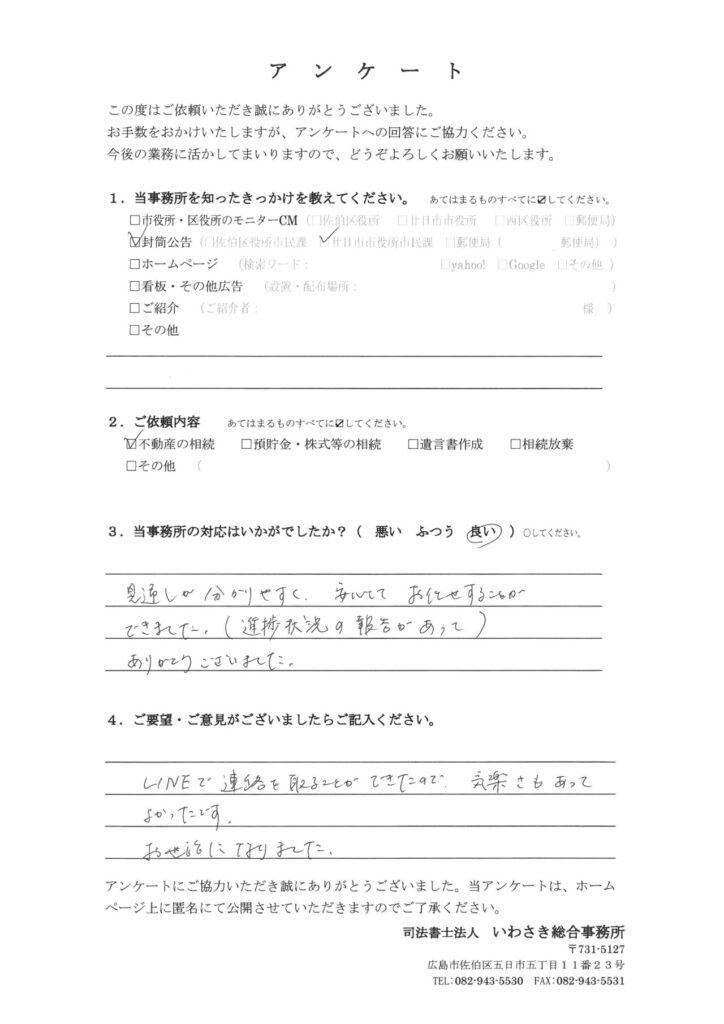 アンケート
この度はご依頼いただき誠にありがとうございました。
お手数をおかけいたしますが、アンケートへの回答にご協力ください。
今後の業務に活かしてまいりますので、どうぞよろしくお願いいたします。
1．当事務所を知ったきっかけを教えてください。 あてはまるものすべてに☑してください。
□市役所・区役所のモニターCM (□佐伯区役所 □廿日市市役所 □西区役所 □郵便局)
☑封筒公告 (□佐伯区役所市民課 ☑廿日市市役所市民課 □郵便局 ( 郵便局) )
□ホームページ (検索ワード： □yahoo! □Google □その他 )
□看板・その他広告 (設置・配布場所： )
□ご紹介 (ご紹介者： 様 )
□その他
2．ご依頼内容 あてはまるものすべてに☑してください。
☑不動産の相続 □預貯金・株式等の相続 □遺言書作成 □相続放棄
□その他 ( )
3．当事務所の対応はいかがでしたか？ ( 悪い ふつう 良い ) ○してください。
見通しが分かりやすく、安心して お任せすることが
できました。(進捗状況の報告があって)
ありがとうございました。
4．ご要望・ご意見がございましたらご記入ください。
LINEで連絡を取ることができたので、気楽さもあって
よかったです。
お世話になりました。
アンケートにご協力いただき誠にありがとうございました。当アンケートは、ホーム
ページ上に匿名にて公開させていただきますのでご了承ください。
司法書士法人 いわさき総合事務所
〒731-5127
広島市佐伯区五日市五丁目１１番２３号
TEL:082-943-5530 FAX:082-943-5531